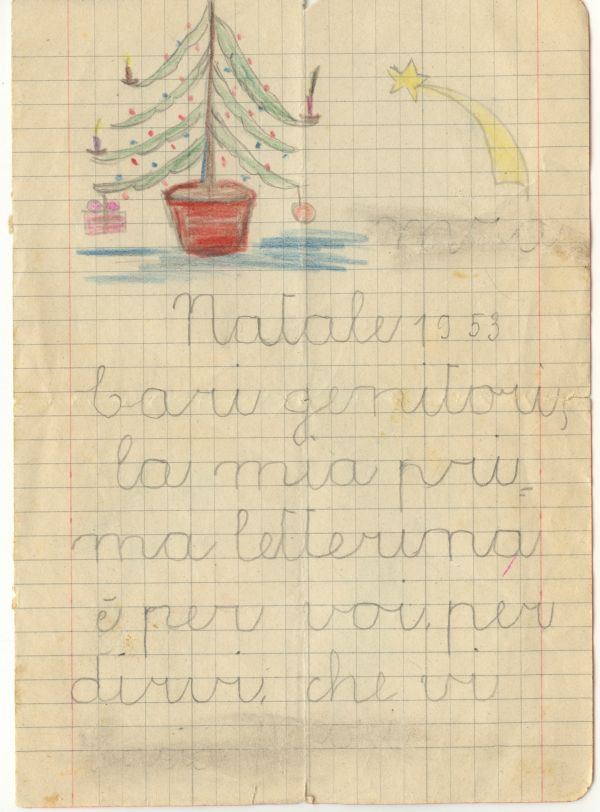 Natale 1953
Cari genitori,
la mia pri=
ma letterina
è per voi, per
dirvi, che vi